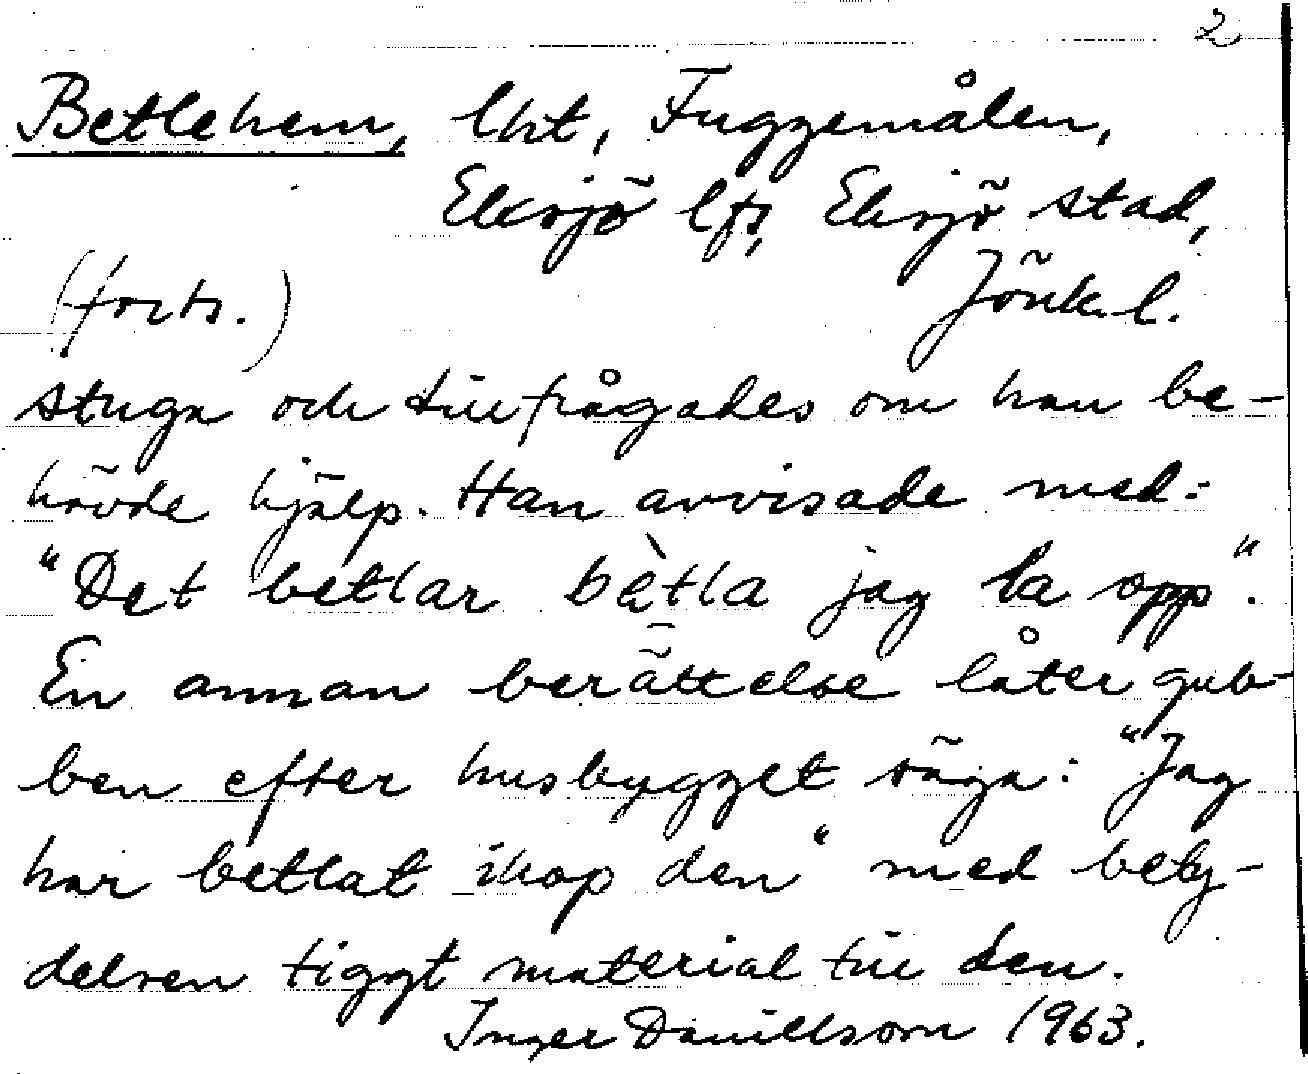 2
Betlehem, lht, Fuggemålen,
Eksjö lfs, Eksjö stad,
(forts.) Jönk. l.
stuga och tillfrågades om han be-
hövde hjälp. Han avvisade med:
"Det betlar bètla jag la opp".
En annan berättelse låter gub-
ben efter husbygget säga: "Jag
har betlat ihop den" med bety-
delsen tiggt material till den.
Inger Daniellsson 1963.